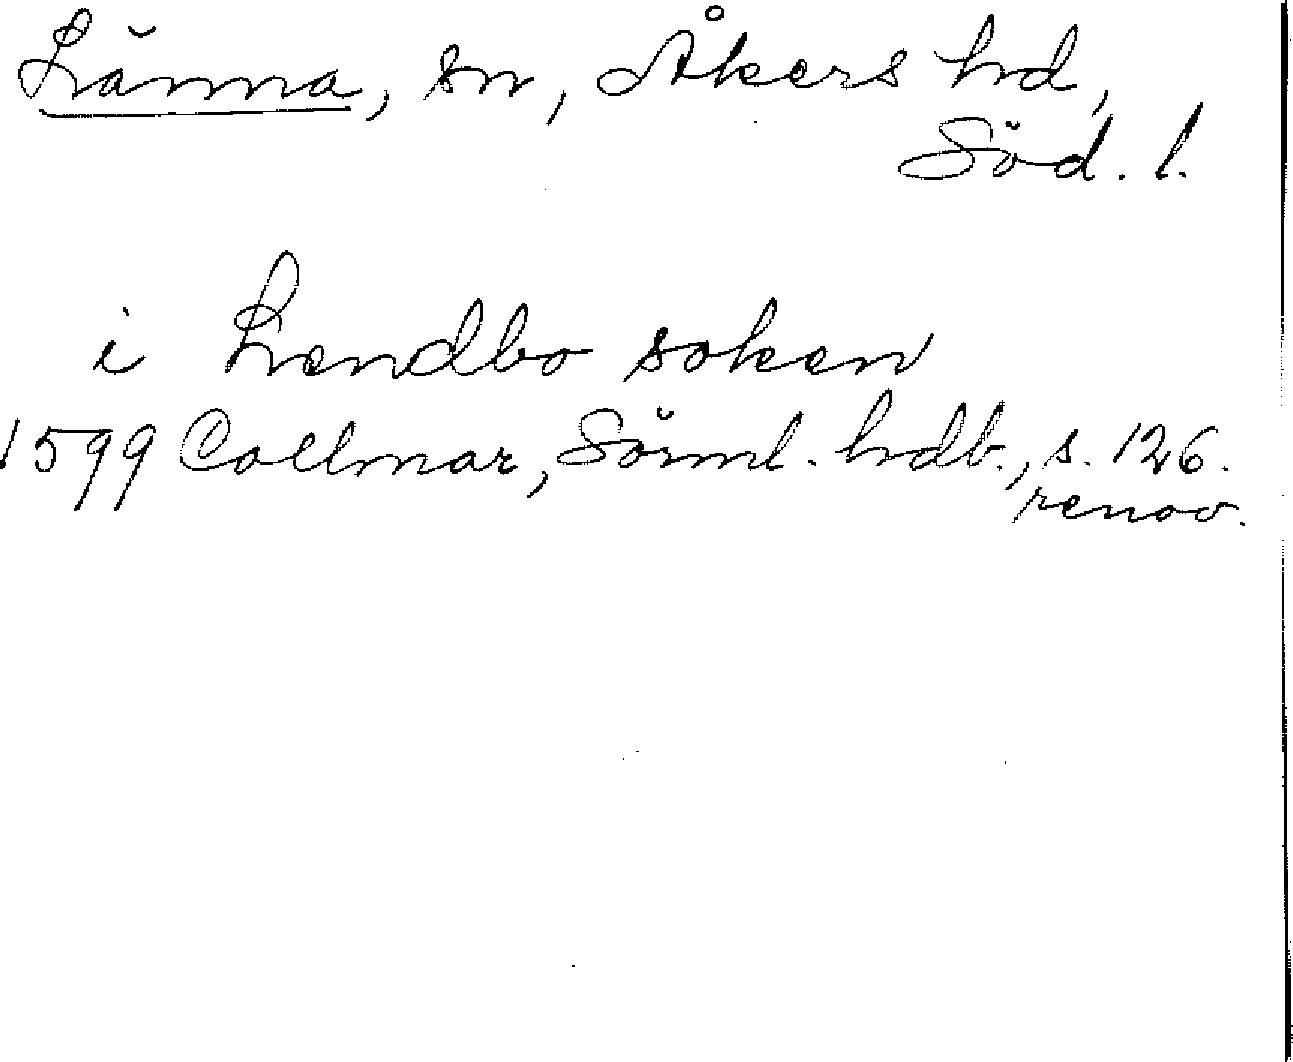 Länna, sn, Åkers hd,
Söd. l.
i Lendbo soken
1599 Collmar, Sörml. hdb., s. 126.
renov.